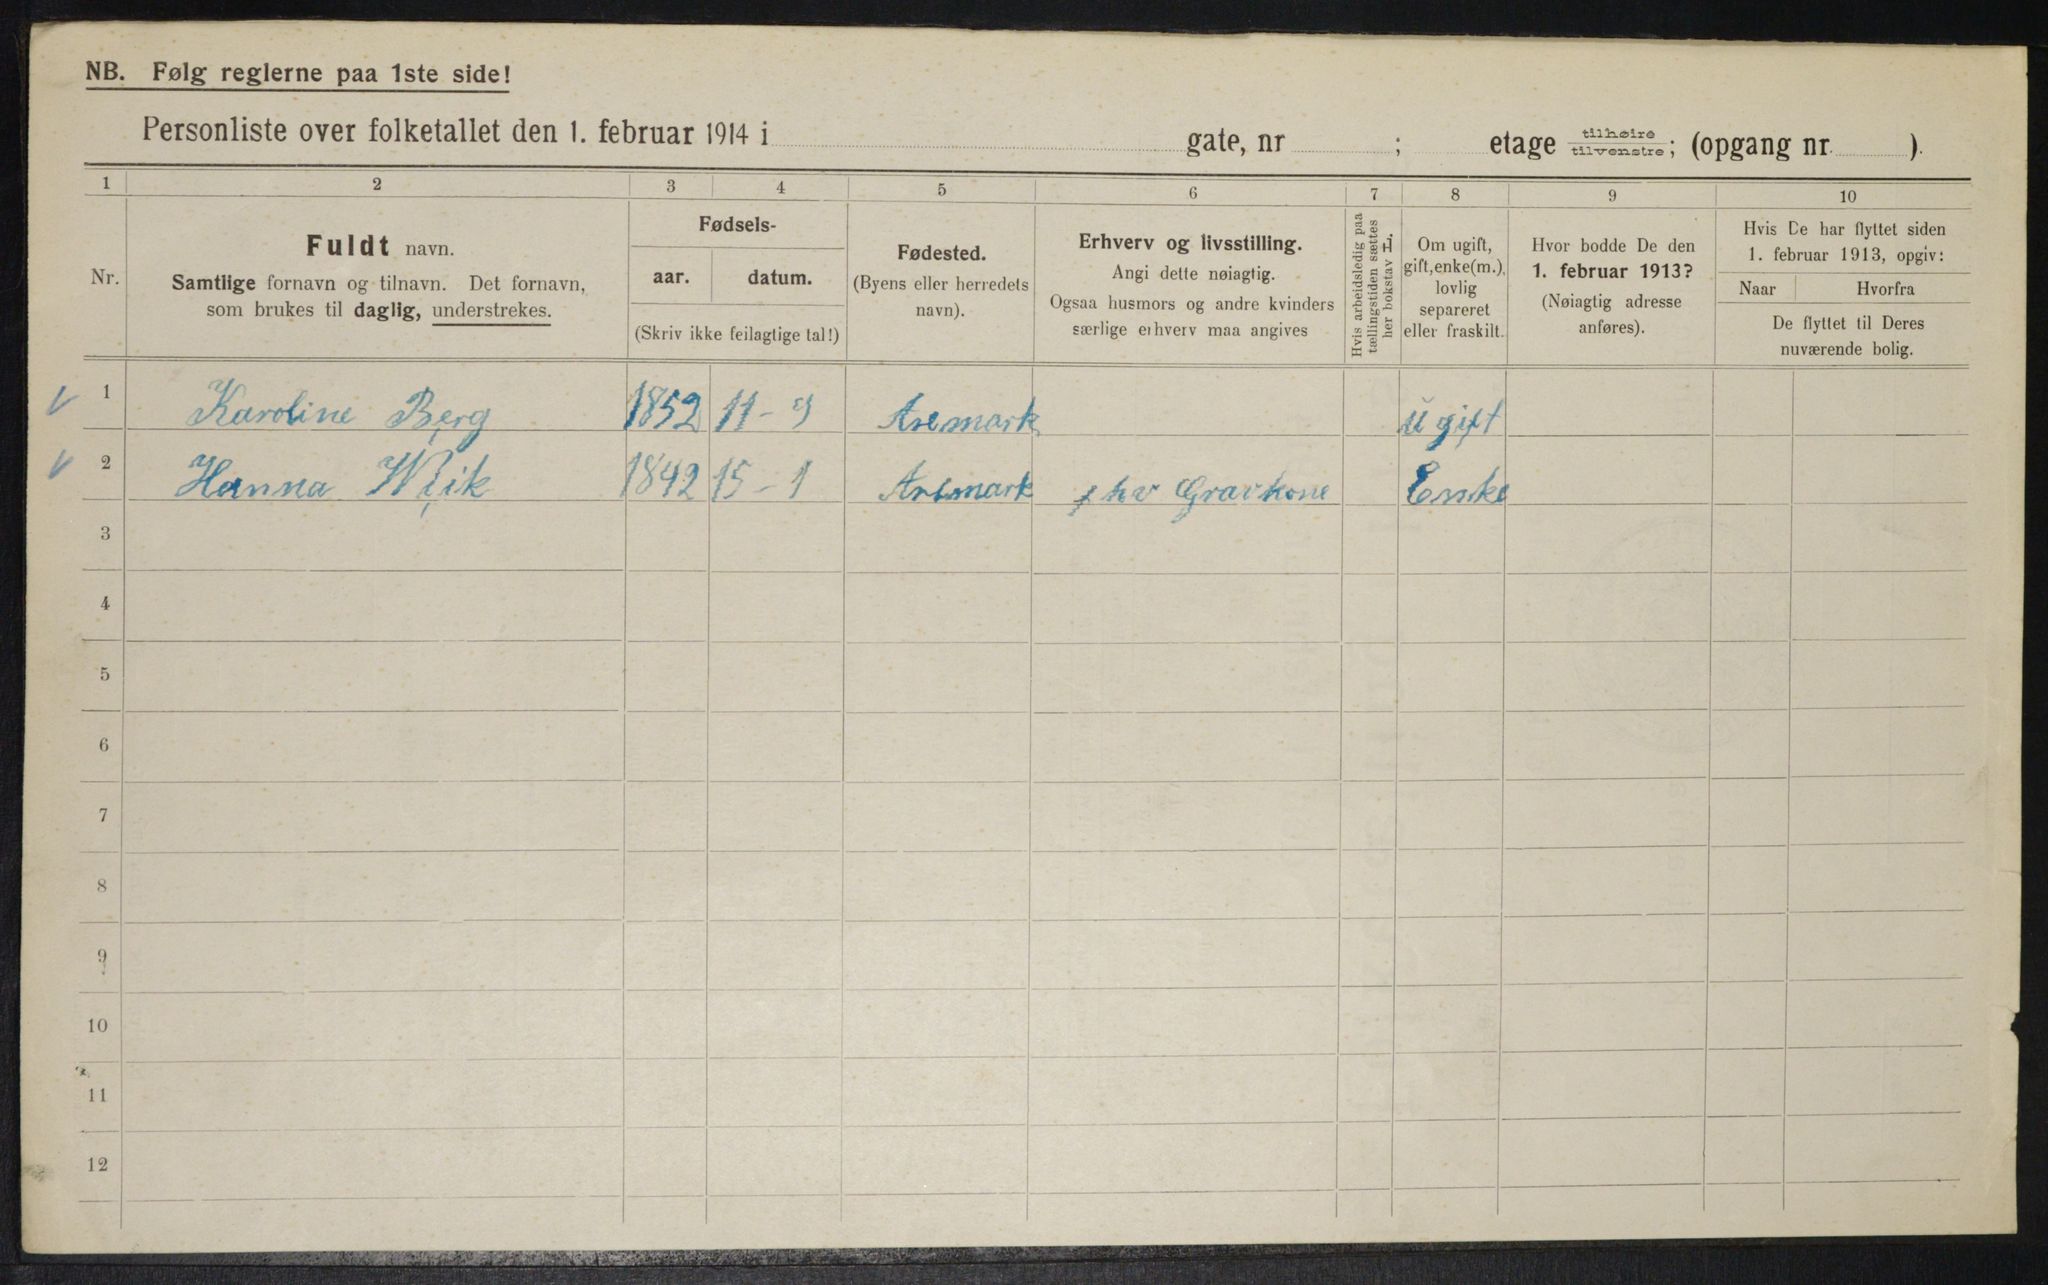 NB. Følg reglerne paa 1ste side!
Personliste over folketallet den 1. februar 1914 i gate, nr ; etage tilhøire tilvenstre; (opgang nr ).
1 2 3 4 5 6 7 8 9 10
Nr.
Fuldt navn.
Samtlige fornavn og tilnavn. Det fornavn,
som brukes til daglig, understrekes.
Fødsels-
aar. datum.
(Skriv ikke feilagtige tal!)
Fødested.
(Byens eller herredets
navn).
Erhverv og livsstilling.
Angi dette nøiagtig.
Ogsaa husmors og andre kvinders
særlige erhverv maa angives
Hvis arbeidsledig paa
tællingstiden sættes
her bokstav L.
Om ugift,
gift, enke(m.),
lovlig
separeret
eller fraskilt.
Hvor bodde De den
1. februar 1913?
(Nøiagtig adresse
anføres).
Hvis De har flyttet siden
1. februar 1913, opgiv:
Naar Hvorfra
De flyttet til Deres
nuværende bolig.
1 Karoline Berg 1852 11-9 Aremark ugift
2 Hanna Wiik 1842 15-1 Aremark fhv Gravkone Enke
3
4
5
6
7
8
9
10
11
12